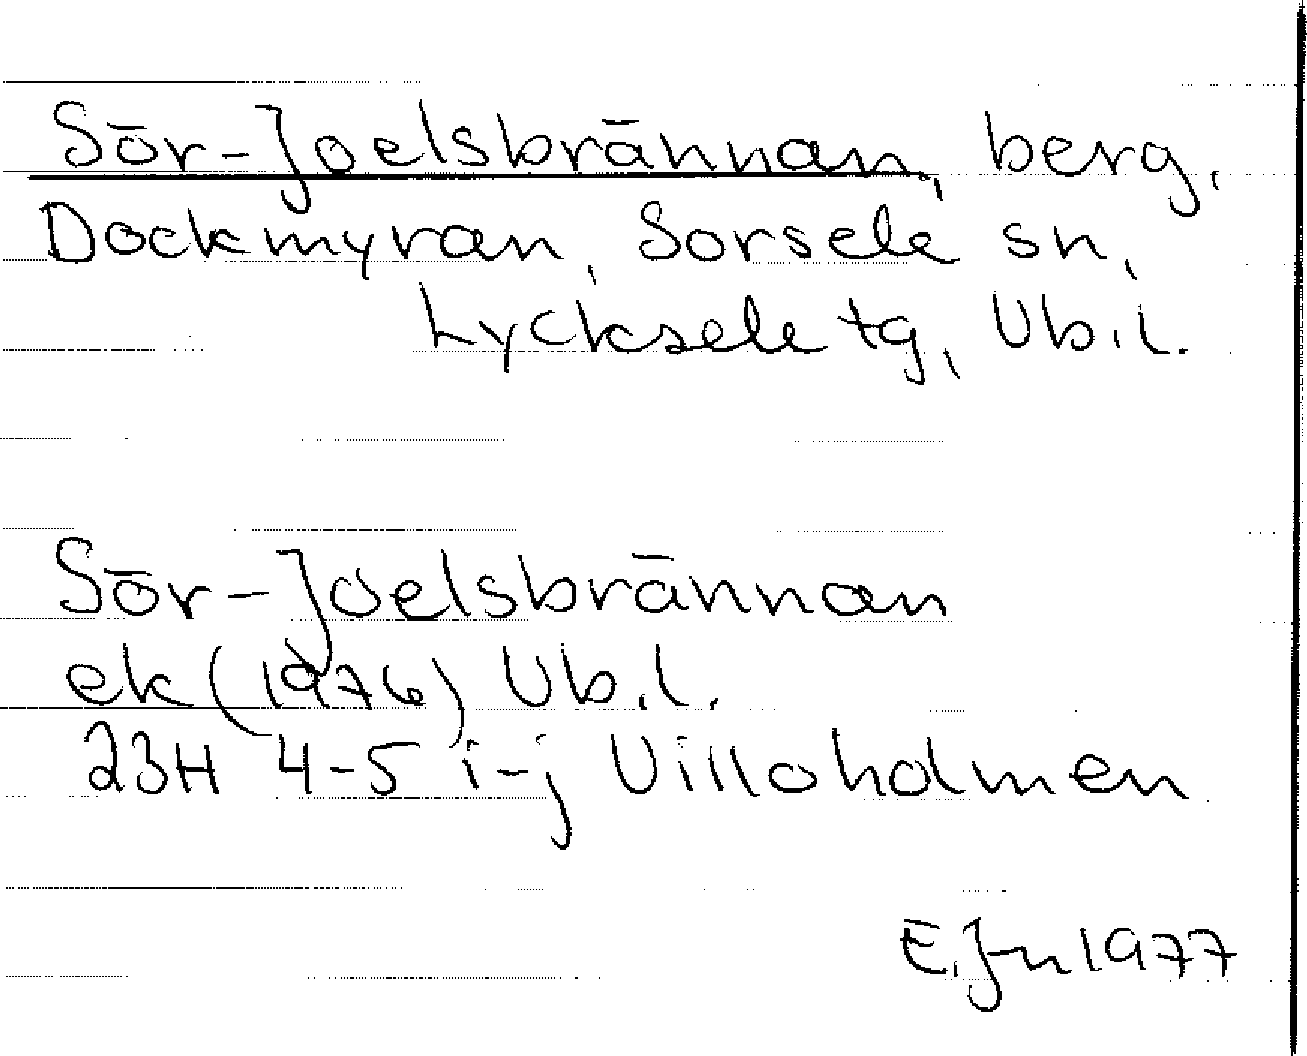 Sör-Joelsbrännan, berg,
Dockmyran, Sorsele sn,
Lycksele tg, Vb.l.
Sör-Joelsbrännan
ek (1976) Vb.l.
23H 4-5 i-j Villoholmen
E.Jn 1977